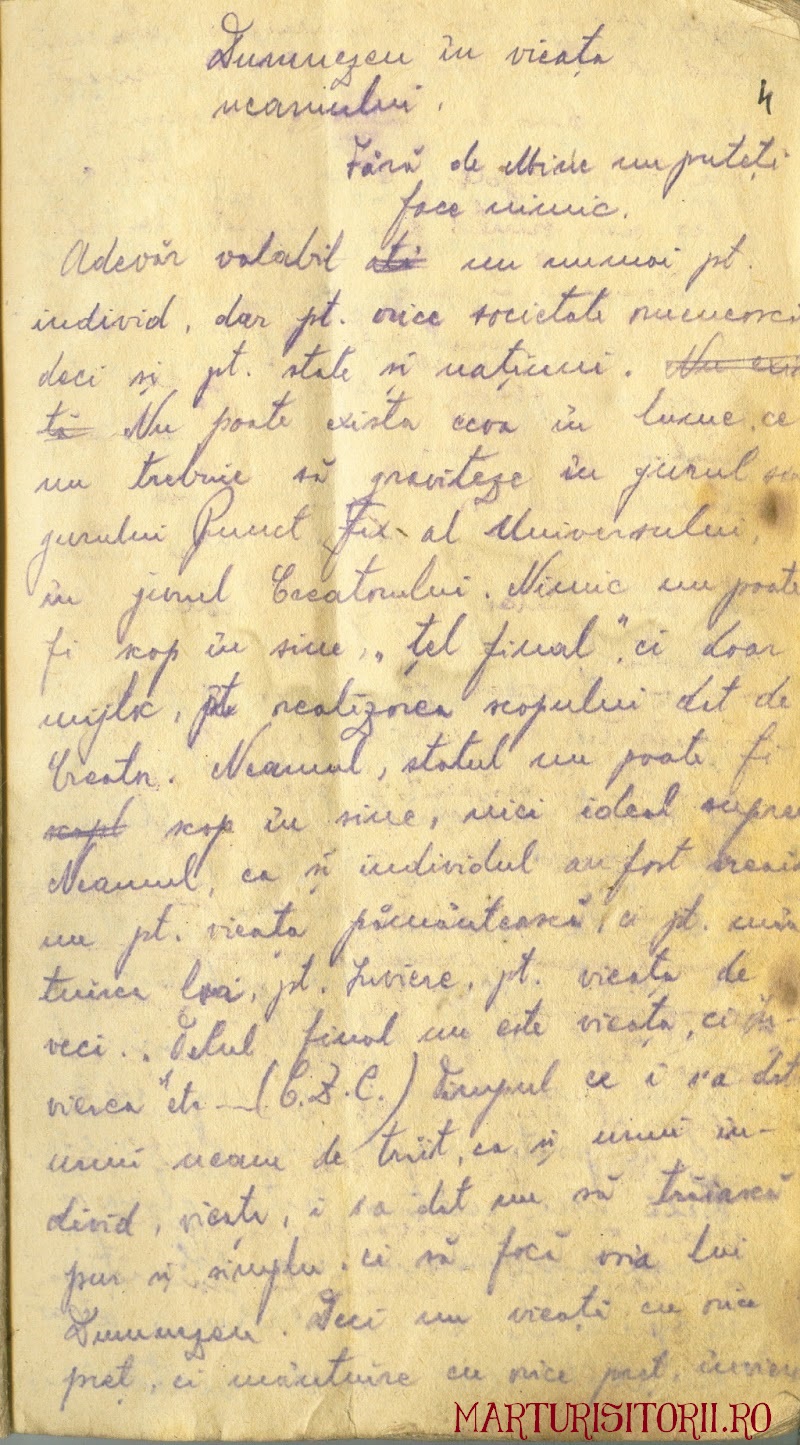 Dumnezeu în vieața
neamului.
4
Fără de Mine nu puteți
face nimic.
Adevăr valabil nu numai pt.
individ, dar pt. orice societate omenească
deci și pt. state și națiuni. Nu exis
tă Nu poate exista ceva în lume, ce
nu trebuie să graviteze în jurul sin
gurului Punct Fix al Universului,
în jurul Creatorului. Nimic nu poate
fi scop în sine, „țel final", ci doar
mijloc, pt. realizarea scopului dat de
Creator. Neamul, statul nu poate fi
scopl scop în sine, nici ideal suprem
Neamul, ca și individul au fost creați
nu pt. vieața pământească, ci pt. mân
tuirea lor, pt. Înviere, pt. vieața de
veci. „Țelul final nu este vieața, ci În-
vierea" etc — (C.Z.C.) Timpul ce i s'a dat
unui neam de trăit, ca și unui in-
divid, vieața, i s'a dat nu să trăiască
pur și simplu, ci să facă voia lui
Dumnezeu. Deci nu vieață cu orice
preț, ci mântuire cu orice preț, înviere
MARTURISITORII.RO